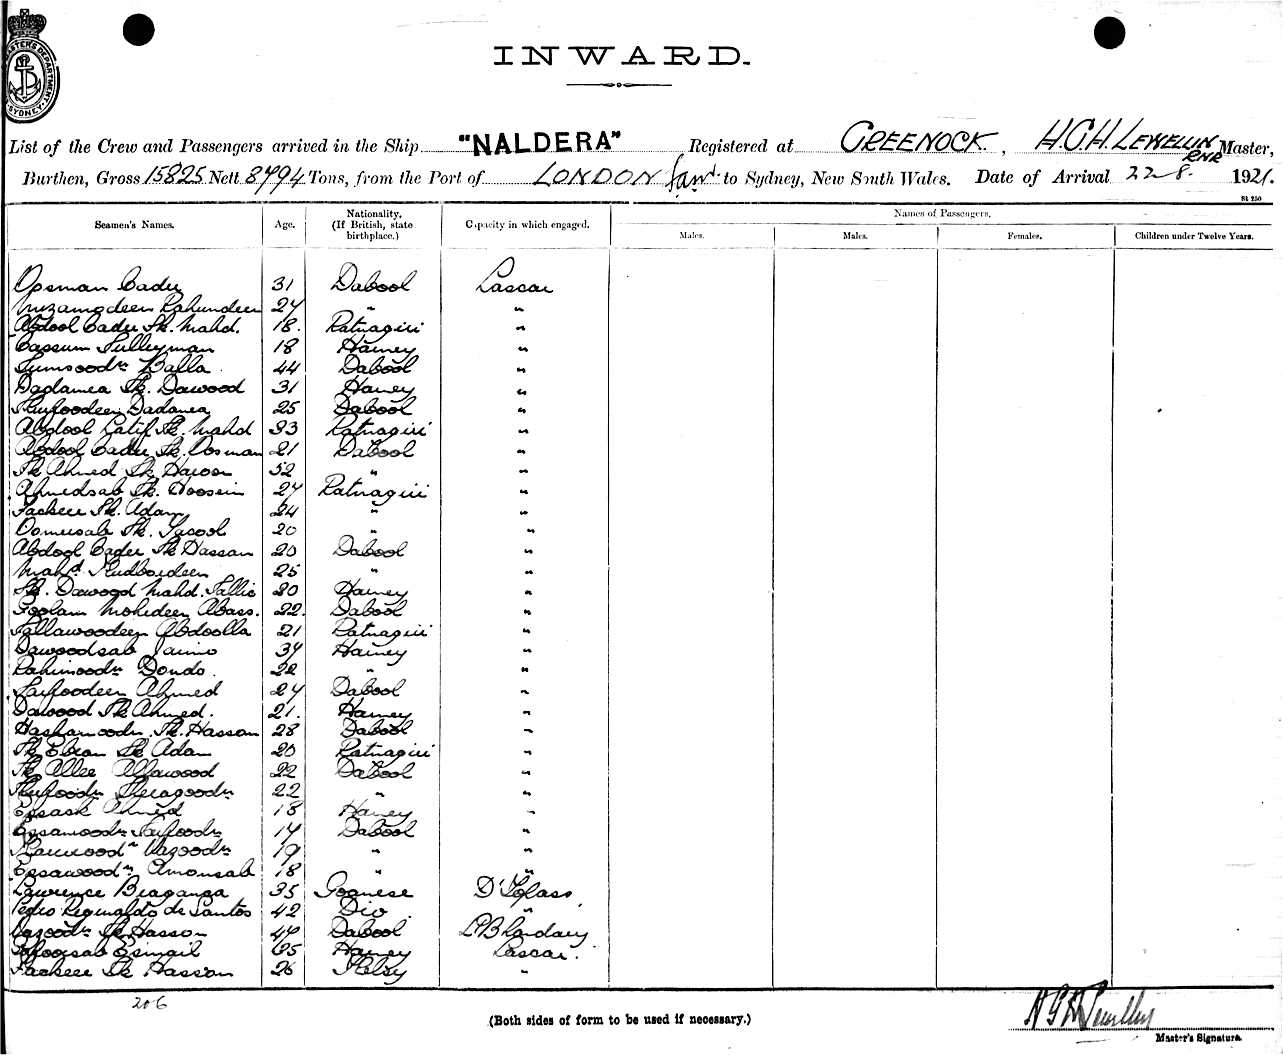 MASTER'S DEPARTMENT SYDNEY
INWARD.
List of the Crew and Passengers arrived in the Ship "NALDERA" Registered at GREENOCK, H.G.H. LEWELLIN RNR Master,
Burthen, Gross 15825 Nett 8494 Tons, from the Port of LONDON to Sydney, New South Wales. Date of Arrival 22 8. 1921.
St 250
Seamen's Names. Age. Nationality. (If British, state birthplace.) Capacity in which engaged. Names of Passengers.
Males. Males. Females. Children under Twelve Years.
Oosman Cader 31 Dabool Lascar
Nuzamodeen Rahundeen 24 " "
Abdool Cader Sk. Mahd. 18. Ratnagiri "
Cassum Sulleyman 18 Harney "
Balla 44 Dabool "
Dadamea Sk. Dawood 31 Harney "
Shufoodeen Dadamea 25 Dabool "
Abdool Latif Sk. Mahd 33 Ratnagiri "
Abdool Cader Sk. Oosman 21 Dabool "
Sk Ahmed Sk Hason 52 " "
Ahmedsab Sk. Hoosein 24 Ratnagiri "
Fackeer Sk. Adam 24 " "
Oomersab Sk. 20 " "
Abdool Cader Sk Hassan 20 Dabool "
Mahd 25 " "
Sk. Dawood Mahd. Tallie 20 Harney "
Goolam Mohideen Abass. 22. Dabool "
Fallawoodeen Abdoolla 21 Ratnagiri "
Dawoodsab 34 Harney "
Rahimoodn Dondo. 22 " "
Ahmed 24 Dabool "
Dawood Sk Ahmed. 21. Harney "
Sk. Hassan 28 Dabool "
Sk Ebram Sk Adam 20 Ratnagiri "
Sk Allee Allawood 22 Dabool "
Shufoodn 22 " "
Essack Ahmed 18 Harney "
Essamoodn 17 Dabool "
19 " "
Essawoodn Amonsab 18 " "
Lawrence Braganga 35 Goanese D' Topass
Pedro Reginaldo de Santos 42 Dio "
Sk Hasson 44 Dabool
Esmail 35 Harney Lascar.
Fackeer Sk Hasson 26 "
206
(Both sides of form to be used if necessary.)
Master's Signature.